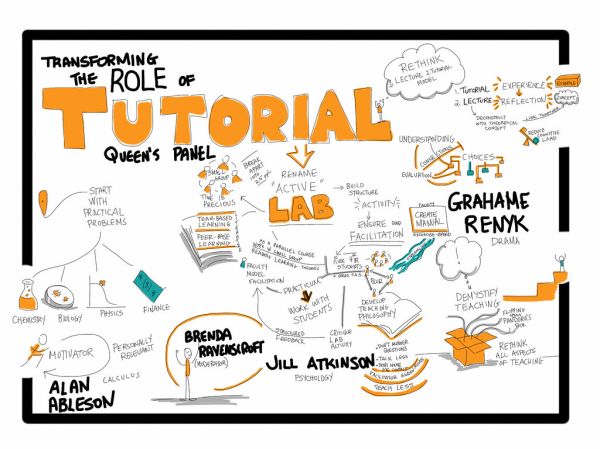 TRANSFORMING
THE ROLE OF
TUTORIAL
QUEEN'S PANEL
RETHINK
LECTURE & TUTORIAL
MODEL
1. TUTORIAL
EXPERIENCE
EXAMPLE
2. LECTURE
REFLECTION
CONCEPT
LINK TOGETHER
DECONSTRUCT
WITH THEORETICAL
CONCEPT
REDUCE
COGNITIVE
LOAD
UNDERSTANDING
CONNECTIONS
CHOICES
EVALUATION
GRAHAME
RENYK
DRAMA
RENAME
"ACTIVE"
LAB
BUILD
STRUCTURE
"ACTIVITY"
ENSURE GOOD
FACILITATION
FACULTY
CREATE
MANUAL
SMALL
GROUP
BREAK
APART
INTO
TIME IS
PRECIOUS
TEAM-BASED
LEARNING
PEER-BASED
LEARNING
START
WITH
PRACTICAL
PROBLEMS
CHEMISTRY
BIOLOGY
PHYSICS
FINANCE
MOTIVATOR
PERSONALLY
RELEVANT
CALCULUS
ALAN
ABLESON
BRENDA
RAVENSCROFT
(MODERATOR)
FACULTY
MODEL
FACILITATION
PARALLEL COURSE
PRACTICUM
WORK WITH
STUDENTS
STRUCTURED
FEEDBACK
CRITIQUE
LAB
ACTIVITY
JILL ATKINSON
PSYCHOLOGY
STUDENTS
DEVELOP
TEACHING
PHILOSOPHY
DON'T ANSWER
QUESTIONS
TALK LESS
TEACH LESS
DEMYSTIFY
TEACHING
PANDORA'S
BOX
RETHINK
ALL ASPECTS
OF TEACHING